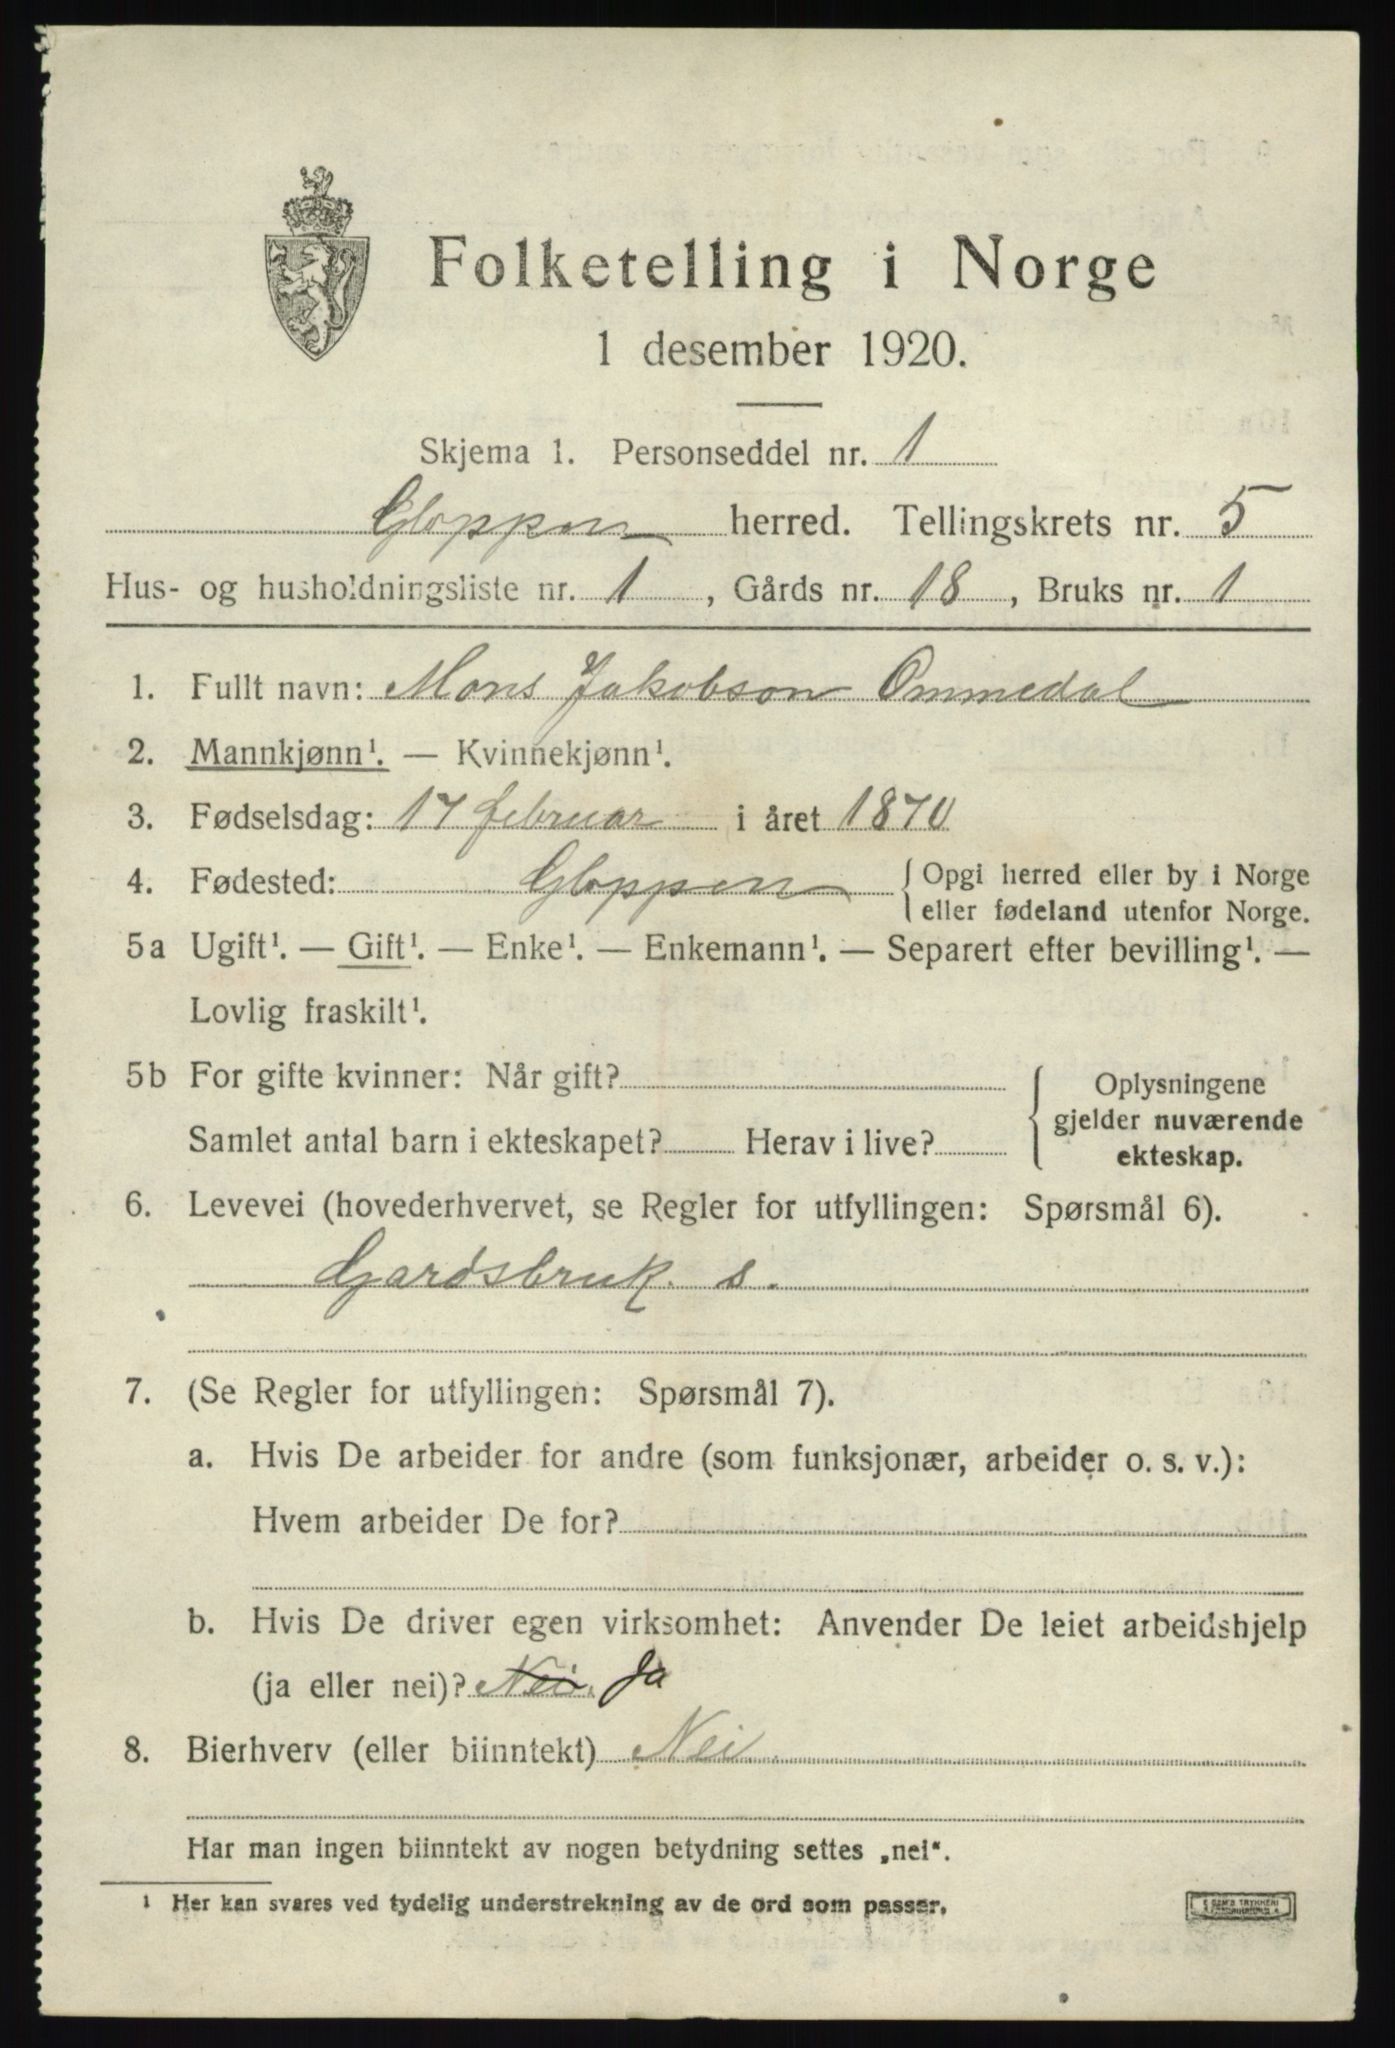 Folketelling i Norge
1 desember 1920.
Skjema 1. Personseddel nr. 1
Gloppen herred. Tellingskrets nr. 5
Hus- og husholdningsliste nr. 1, Gårds nr. 18, Bruks nr. 1
1. Fullt navn: Mons Jakobson Ommedal
2. Mannkjønn¹. — Kvinnekjønn¹.
3. Fødselsdag: 17 februar i året 1870
4. Fødested: Gloppen { Opgi herred eller by i Norge
eller fødeland utenfor Norge.
5a Ugift¹. — Gift¹. — Enke¹. — Enkemann¹. — Separert efter bevilling¹. —
Lovlig fraskilt¹.
5b For gifte kvinner: Når gift?
Samlet antal barn i ekteskapet? Herav i live?
Oplysningene
gjelder nuværende
ekteskap.
6. Levevei (hovederhvervet, se Regler for utfyllingen: Spørsmål 6).
Gardsbruk. s.
7. (Se Regler for utfyllingen: Spørsmål 7).
a. Hvis De arbeider for andre (som funksjonær, arbeider o. s. v.):
Hvem arbeider De for?
b. Hvis De driver egen virksomhet: Anvender De leiet arbeidshjelp
(ja eller nei)? Nei. Ja
8. Bierhverv (eller biinntekt) Nei.
Har man ingen biinntekt av nogen betydning settes „nei“.
¹ Her kan svares ved tydelig understrekning av de ord som passer.